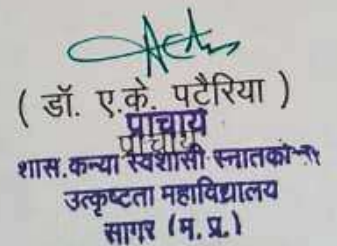 ( डॉ. ए.के. पटैरिया )
प्राचार्य
प्राचार्य
शास.कन्या स्वशासी स्नातको
उत्कृष्टता महाविद्यालय
सागर (म.प्र.)